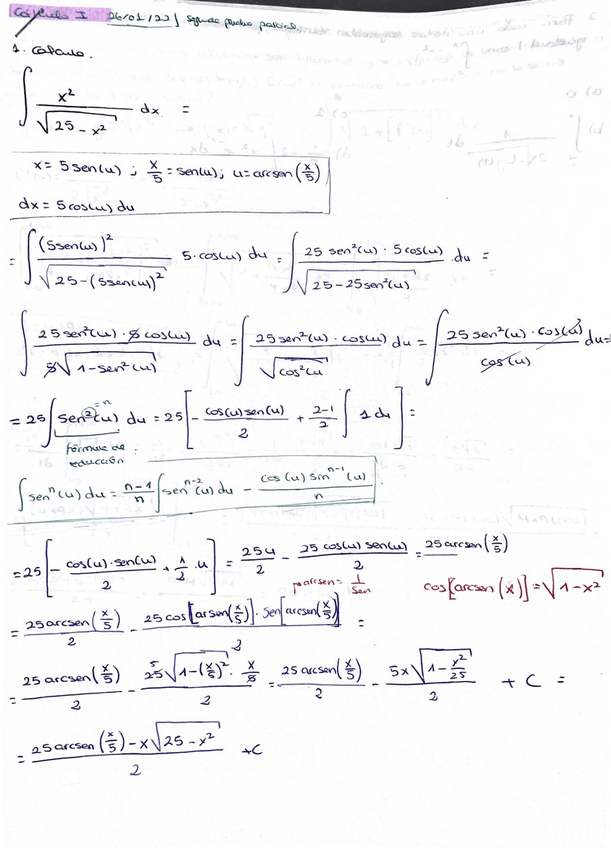 Cálculo I 26/01/22 | Segunda prueba parcial
1. Calculo.
∫ x² / √(25 - x²) dx =
x = 5 sen(u) ; x/5 = sen(u) ; u = arcsen(x/5)
dx = 5 cos(u) du
= ∫ (5sen(u))² / √(25 - (5sen(u))²) 5·cos(u) du = ∫ 25 sen²(u) · 5 cos(u) / √(25 - 25 sen²(u)) du =
∫ 25 sen²(u) · 5 cos(u) / 5√(1 - sen²(u)) du = ∫ 25 sen²(u) · cos(u) / √(cos²(u) du = ∫ 25 sen²(u) · cos(u) / cos(u) du =
= 25 ∫ sen²(u) du = 25 [ - cos(u) sen(u) / 2 + 2-1 / 2 ∫ 1 du ] =
= n
fórmula de
reducción
∫ senⁿ(u) du = n-1 / n ∫ senⁿ⁻²(u) du - cos(u) sinⁿ⁻¹(u) / n
= 25 [ - cos(u)·sen(u) / 2 + 1/2 · u ] = 25u / 2 - 25 cos(u) sen(u) / 2 = 25 arcsen(x/5)
arcsen = 1/sen cos[arcsen(x)] = √(1 - x²)
= 25 arcsen(x/5) / 2 - 25 cos[arsen(x/5)] · sen[arcsen(x/5)] / 2 =
= 25 arcsen(x/5) / 2 - 25 √(1 - (x/5)²) · x/5 / 2 = 25 arcsen(x/5) / 2 - 5x √(1 - x²/25) / 2 + C =
= 25 arcsen(x/5) - x √(25 - x²) / 2 + C